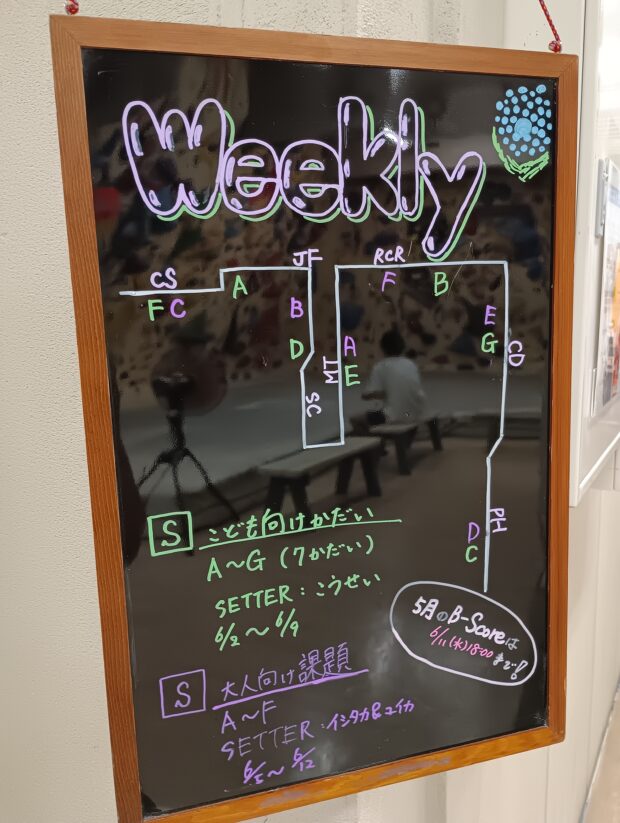 Weekly
CS
F C
A
JF
B
D
SC
MT
A
E
RCR
F
B
E
G
CD
PH
D
C
S こども向けかだい
A～G (7かだい)
SETTER：こうせい
6/2～6/9
5月のB-Scoreは
6/11(水)18:00
まで!
S 大人向け課題
A～F
SETTER：イシタカ&ユイカ
6/5～6/12